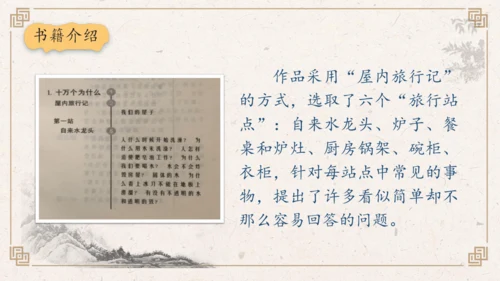 书籍介绍
1. 十万个为什么
屋内旅行记
第一站
自来水龙头
我们的屋子
人什么时候开始洗澡？ 为
什么用水来洗澡？ 人怎样
为什么
我们要喝水？
固体的水 为什
有没有不透明的水
和透明的
作品采用“屋内旅行记”
的方式，选取了六个“旅行站
点”：自来水龙头、炉子、餐
桌和炉灶、厨房锅架、碗柜、
衣柜，针对每站点中常见的事
物，提出了许多看似简单却不
那么容易回答的问题。